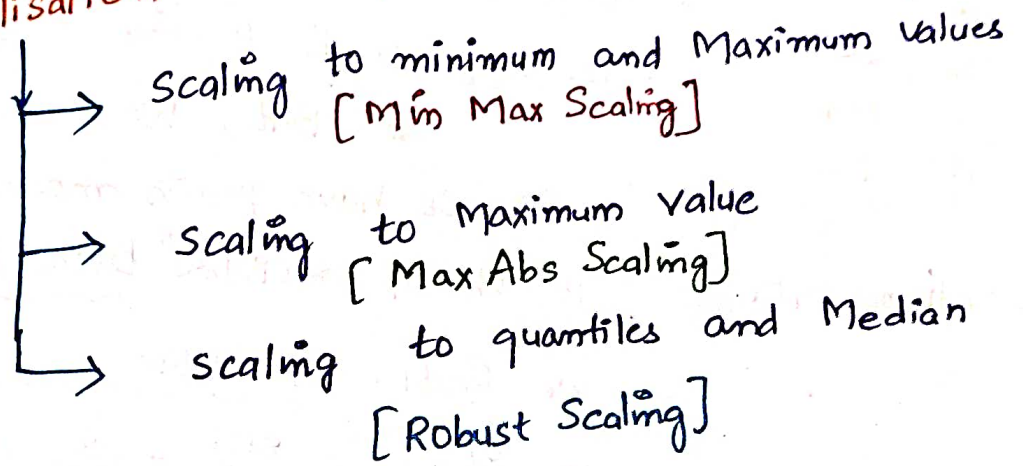 scaling to minimum and Maximum values
[Min Max Scaling]
scaling to Maximum value
[Max Abs Scaling]
scaling to quantiles and Median
[Robust Scaling]